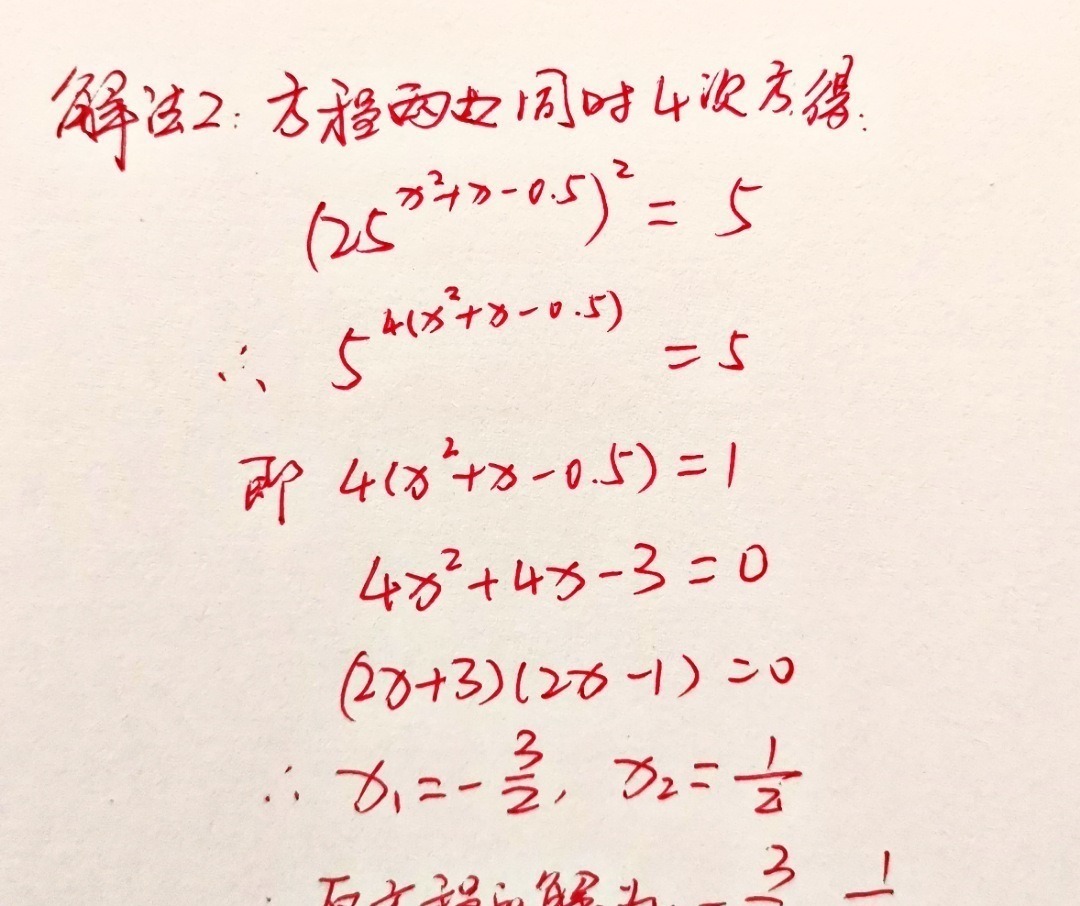 解法2:方程两边同时4次方得.
(25^{x²+x-0.5})² = 5
∴ 5^{4(x²+x-0.5)} = 5
即 4(x²+x-0.5)=1
4x²+4x-3=0
(2x+3)(2x-1)=0
∴ x₁=-3/2, x₂=1/2